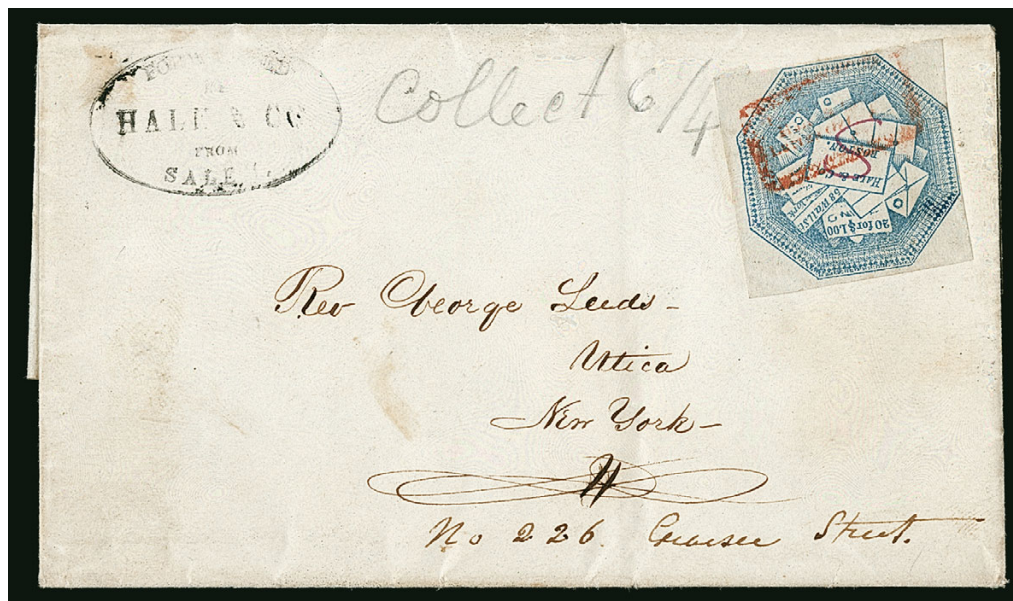 FORWARDED
BY
HALE & CO
FROM
SALEM
Collect 6 1/4
HALE & Co
BOSTON
68 Wall St
20 for $1.00
Rev George Leeds -
Utica
New York -
No 226. Genesee Street.